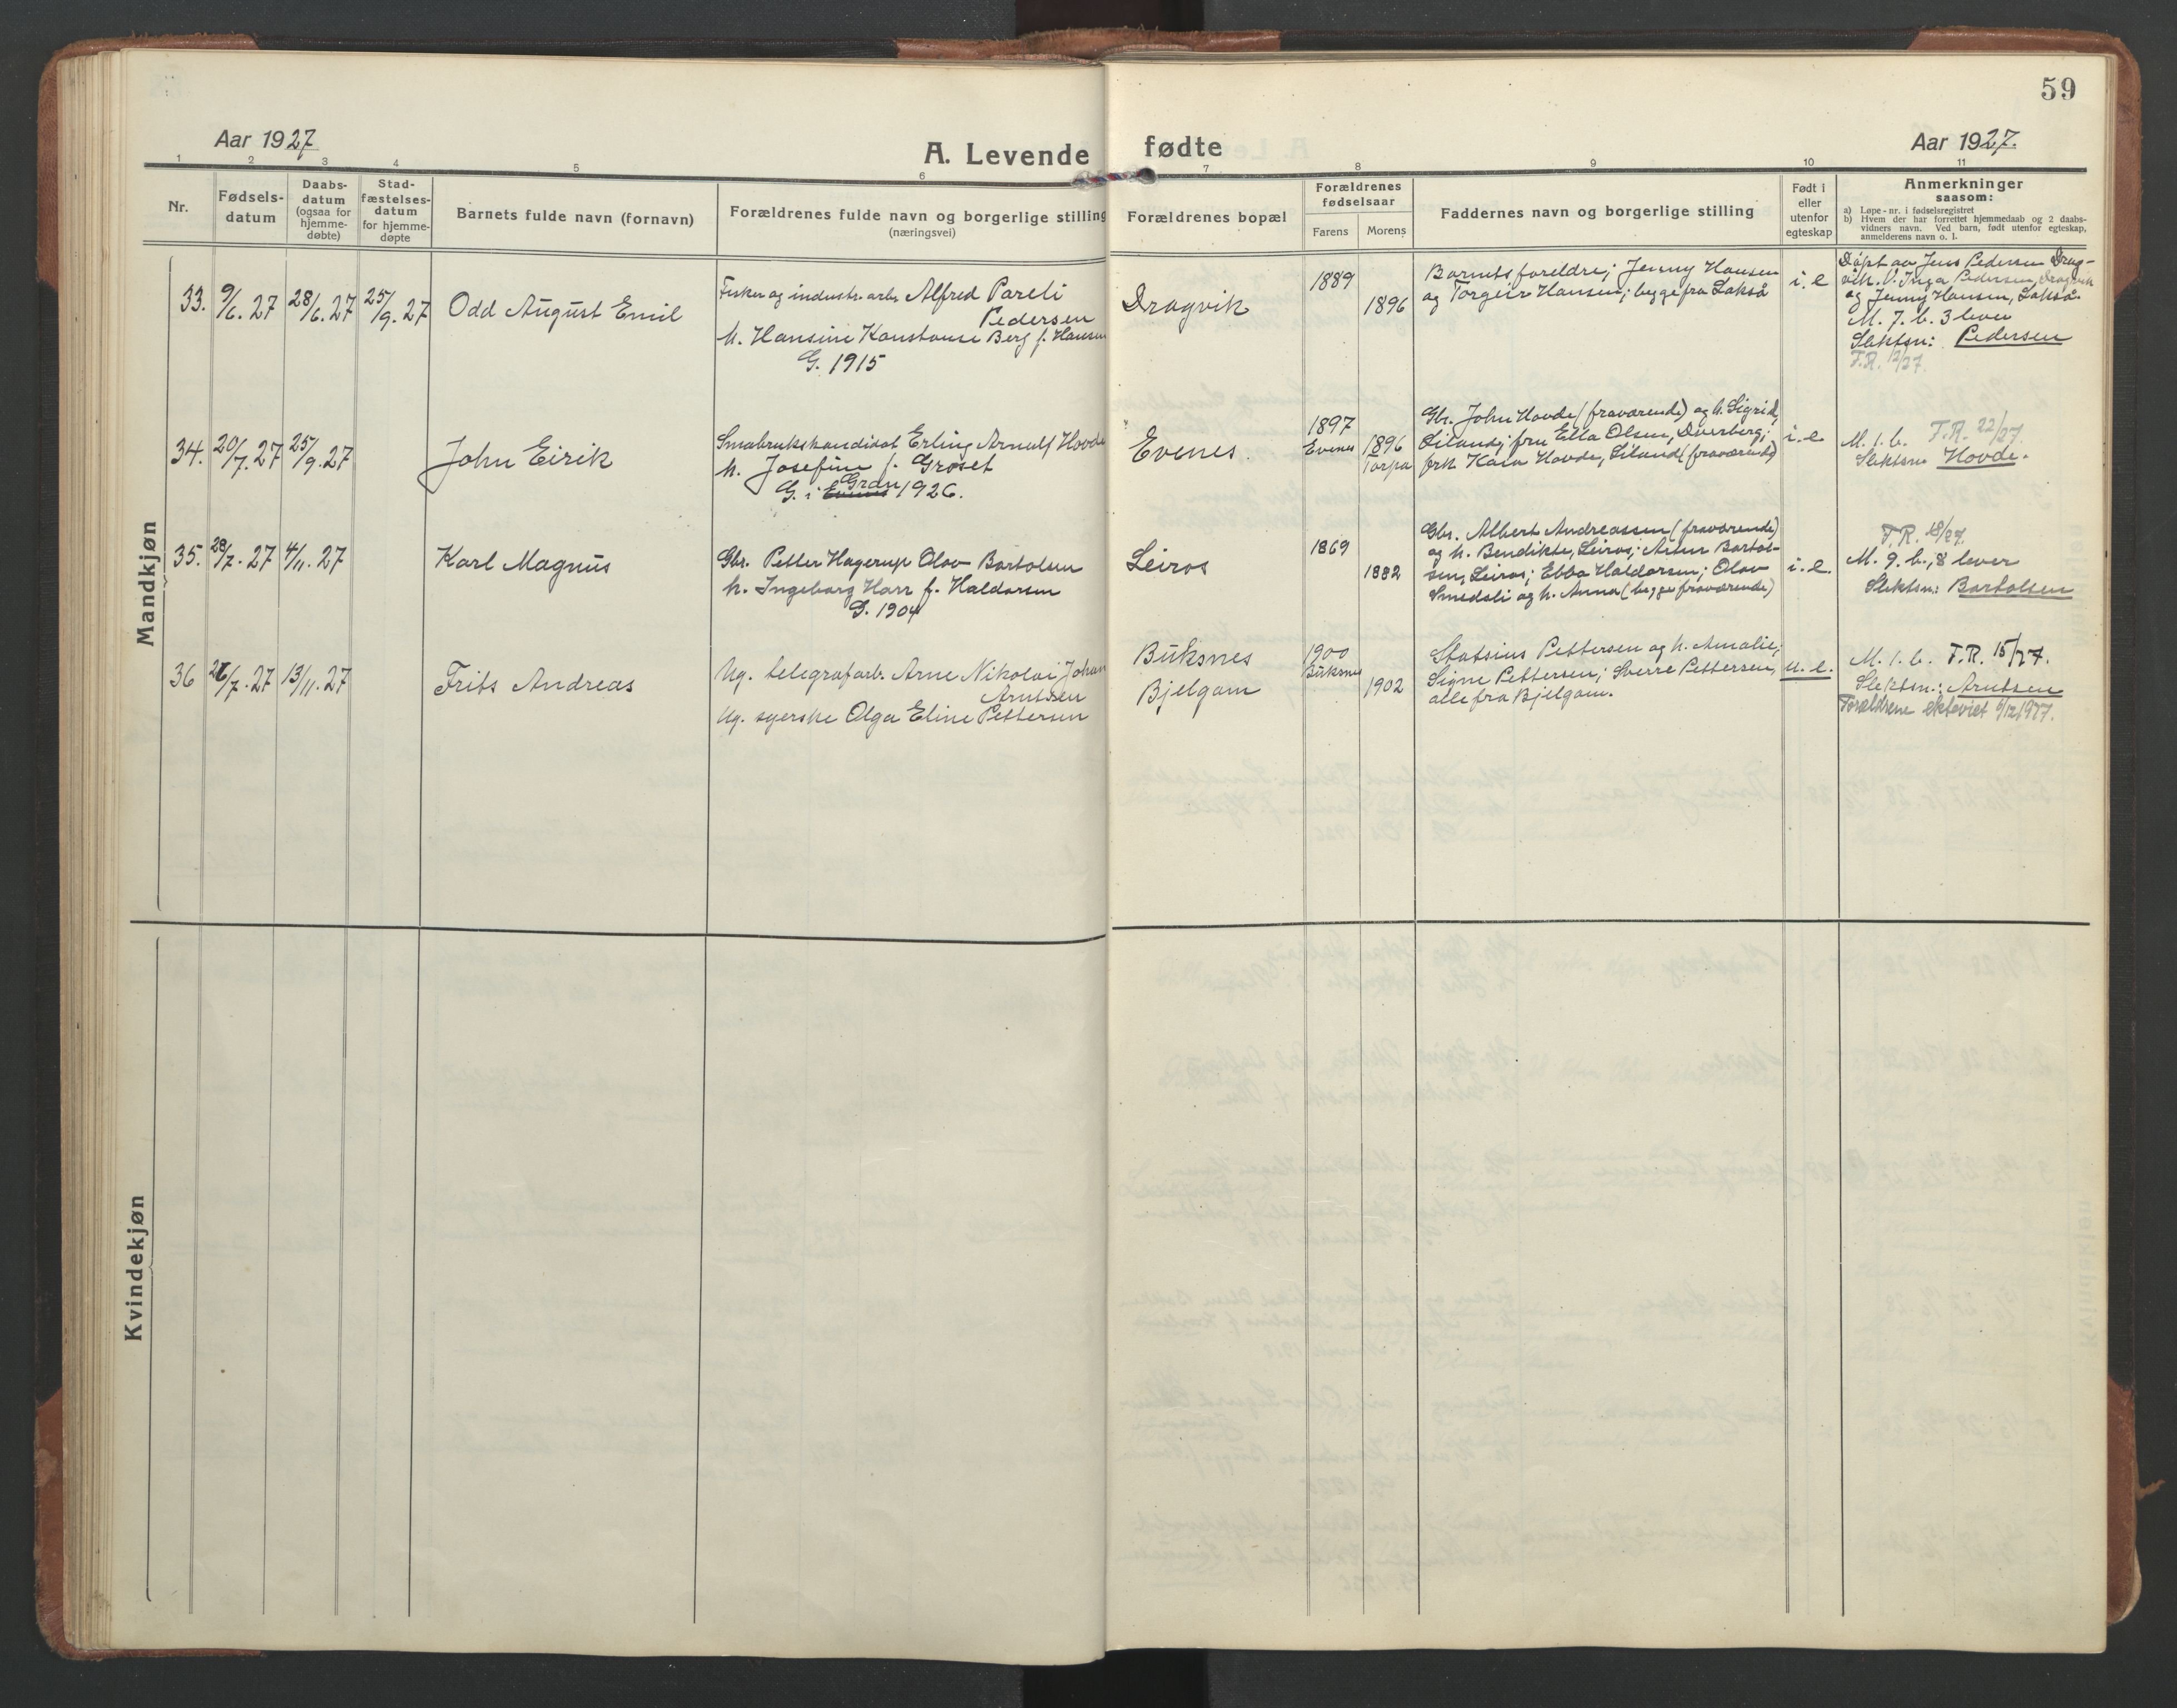 59
Aar 1927
A. Levende fødte
Aar 1927.
1 2 3 4 5 6 7 8 9 10 11
Nr.
Fødsels-
datum
Daabs-
datum
(ogsaa for
hjemme-
døbte)
Stad-
fæstelses-
datum
for hjemme-
døpte
Barnets fulde navn (fornavn)
Forældrenes fulde navn og borgerlige stilling
(næringsvei)
Forældrenes bopæl
Forældrenes
fødselsaar
Farens Morens
Faddernes navn og borgerlige stilling
Født i
eller
utenfor
egteskap
Anmerkninger
saasom:
a) Løpe-nr. i fødselsregistret
b) Hvem der har forrettet hjemmedaab og 2 daabs-
vidners navn. Ved barn, født utenfor egteskap,
anmelderens navn o. l.
Mandkjøn
33. 9/6. 27 28/6. 27 25/9. 27 Odd August Emil
Fisker og industr. arb. Alfred Pareli
Pedersen
h. Hansine Konstanse Berg f. Hansen
G. 1915
Dragvik
1889
1896
Barnets foreldre; Jenny Hansen
og Torgeir Hansen; begge fra Lakså
i. e
Døpt av Jens Pedersen Drag-
vik. V. Inga Pedersen, Dragvik
og Jenny Hansen, Lakså.
M. 7. b. 3 lever
Slektsn: Pedersen
F.R. 12/27.
34. 20/7. 27 25/9. 27 John Eirik
Småbrukskandidat Erling Arnulf Hovde
h. Josefine f. Grøset
G. i Evenes Gran 1926.
Evenes.
1897
Evenes
1896
Torpa
Gbr. John Hovde (fraværende) og h. Sigrid,
Liland; fru Ella Olsen, Dverberg;
frk Kaia Hovde, Liland (fraværende)
i. e
M. 1. b. F.R. 22/27.
Slektsn Hovde.
35. 28/7. 27 4/11. 27 Karl Magnus
Gbr. Petter Hagerup Olav Bartolsen
h. Ingeborg Harr f. Haldorsen
G. 1904
Leiros
1869
1882
Gbr. Albert Andreassen (fraværende)
og h. Bendikte, Leiros; Artur Bartol-
sen, Leiros; Ebba Haldorsen; Olav
Smedali og h. Anna (begge fraværende)
i. e.
F.R. 18/27.
M. 9. b., 8 lever
Slektsn: Bartolsen
36 26/7. 27 13/11. 27 Frits Andreas
Ug. telegrafarb. Arne Nikolai Johan
Arntsen
Ug. syerske Olga Eline Pettersen
Buksnes
Bjelgam
1900
Buksnes
1902
Statsius Pettersen og h. Amalie;
Signe Pettersen; Sverre Pettersen,
alle fra Bjelgam.
u. e.
M. 1. b. F.R. 15/27.
Slektsn.: Arntsen
Forældrene ekteviet 6/12 1927.
Kvindekjøn